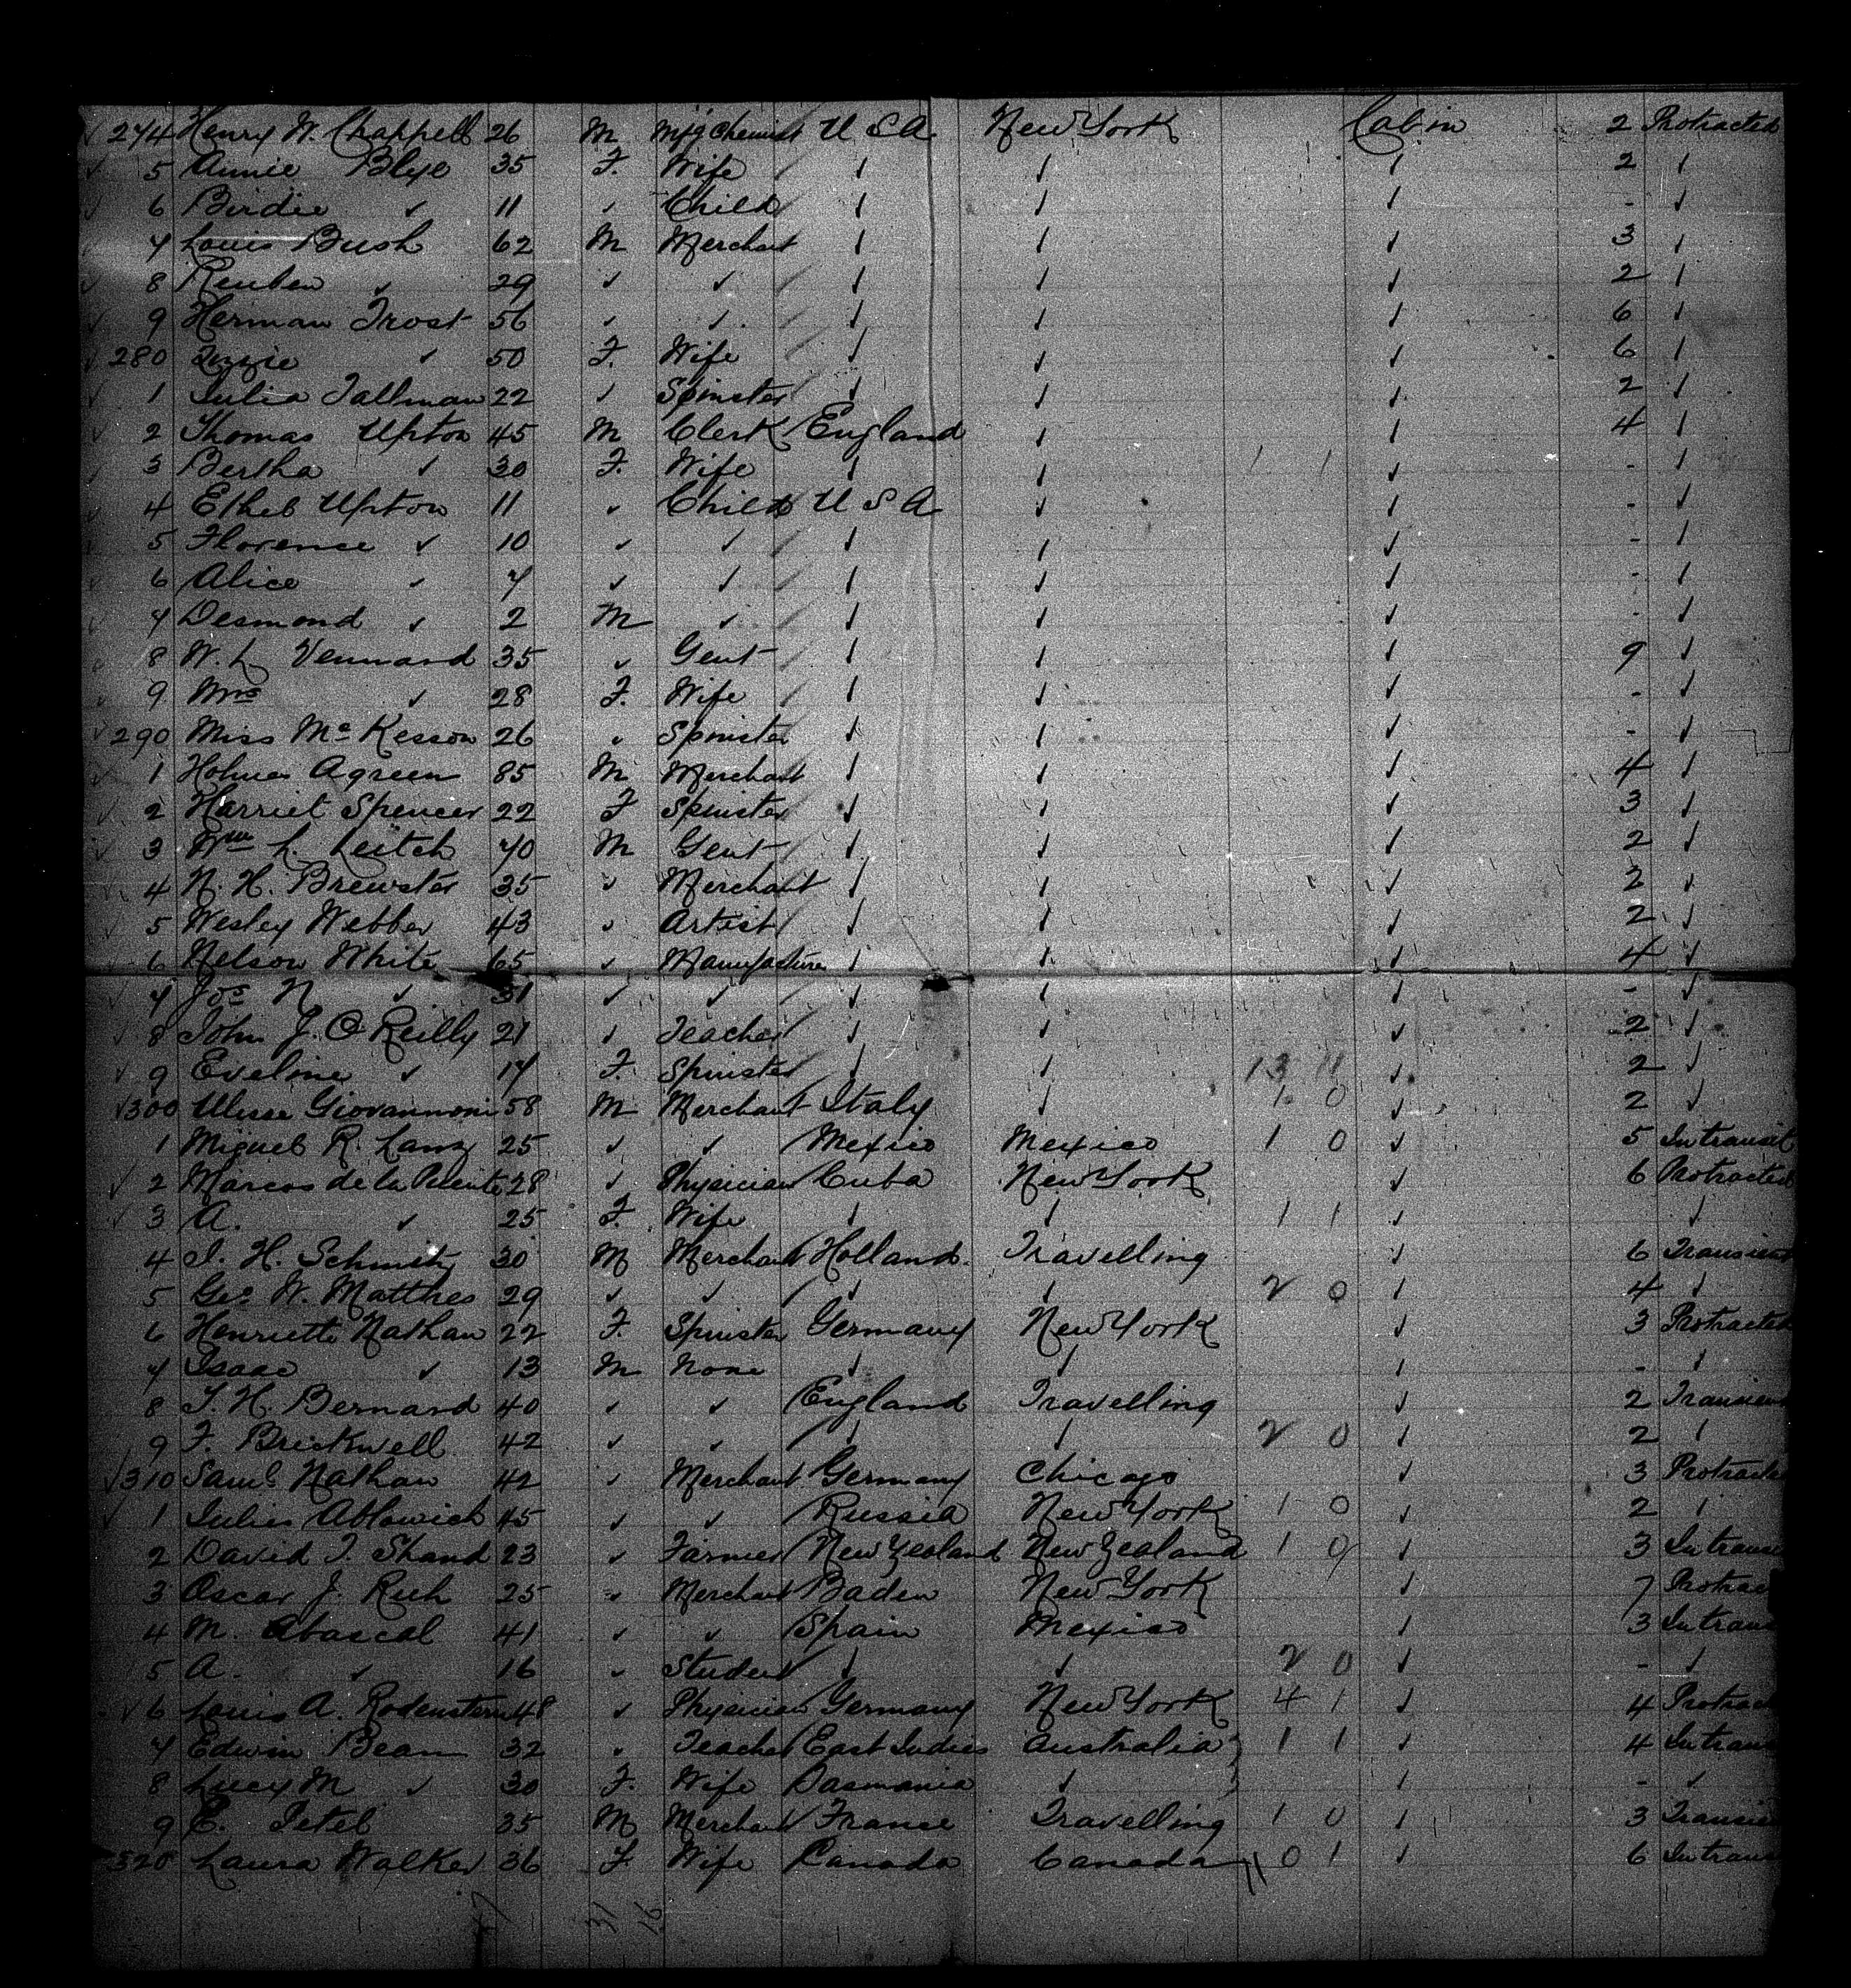 ✓ 274 Henry W. Chappell 26 M Mfg Chemist U S A New York Cabin 2 Protracted
✓ 5 Annie Blye 35 F. Wife ✓ ✓ ✓ 2 ✓
✓ 6 Birdie ✓ 11 ✓ Child ✓ ✓ ✓ - ✓
✓ 7 Louis Bush 62 M Merchant ✓ ✓ ✓ 3 ✓
✓ 8 Reuben ✓ 29 ✓ ✓ ✓ ✓ ✓ 2 ✓
✓ 9 Herman Trost 56 ✓ ✓ ✓ ✓ ✓ 6 ✓
✓ 280 Lizzie ✓ 50 F. Wife ✓ ✓ ✓ 6 ✓
✓ 1 Julia Tallman 22 ✓ Spinster ✓ ✓ ✓ 2 ✓
✓ 2 Thomas Upton 45 M Clerk England ✓ ✓ 4 ✓
✓ 3 Bertha ✓ 30 F. Wife ✓ ✓ 1 1 ✓ - ✓
✓ 4 Ethel Upton 11 ✓ Child U S A ✓ ✓ - ✓
✓ 5 Florence ✓ 10 ✓ ✓ ✓ ✓ ✓ - ✓
✓ 6 Alice ✓ 7 ✓ ✓ ✓ ✓ ✓ - ✓
✓ 7 Desmond ✓ 2 M ✓ ✓ ✓ ✓ - ✓
✓ 8 W. L Vennard 35 ✓ Gent ✓ ✓ ✓ 9 ✓
✓ 9 Mrs ✓ 28 F. Wife ✓ ✓ ✓ - ✓
✓ 290 Miss Mc Kesson 26 ✓ Spinster ✓ ✓ ✓ - ✓
✓ 1 Holmes Agreen 85 M Merchant ✓ ✓ ✓ 4 ✓
✓ 2 Harriet Spencer 22 F Spinster ✓ ✓ ✓ 3 ✓
✓ 3 Wm L. Leitch 40 M Gent ✓ ✓ ✓ 2 ✓
✓ 4 N. H. Brewster 35 ✓ Merchant ✓ ✓ ✓ 2 ✓
✓ 5 Wesley Webber 43 ✓ Artist ✓ ✓ ✓ 2 ✓
6 Nelson White 65 ✓ Manufacture ✓ ✓ ✓ 4 ✓
✓ 7 Jos N ✓ 31 ✓ ✓ ✓ ✓ ✓ - ✓
✓ 8 John J. O Reilly 21 ✓ Teacher ✓ ✓ ✓ 2 ✓
✓ 9 Eveline ✓ 17 F. Spinster ✓ ✓ 13 11 ✓ 2 ✓
✓ 300 Ulisse Giovannoni 58 M Merchant Italy ✓ 1 0 ✓ 2 ✓
1 Miguel R. Lanz 25 ✓ ✓ Mexico Mexico 1 0 ✓ 5 In transit
✓ 2 Marcos de la Puente 28 ✓ Physician Cuba New York ✓ 6 Protracted
✓ 3 A. ✓ 25 F. Wife ✓ ✓ 1 1 ✓ ✓
4 J. H. Schmitz 30 M Merchant Holland. Travelling ✓ 6 Transient
5 Geo W. Matthes 29 ✓ ✓ ✓ ✓ 2 0 ✓ 4 ✓
6 Henriette Nathan 22 F. Spinster Germany New York ✓ 3 Protracted
7 Isaac ✓ 13 M None ✓ ✓ ✓ - ✓
8 T. H. Bernard 40 ✓ ✓ England Travelling ✓ 2 Transien
9 F. Brickwell 42 ✓ ✓ ✓ ✓ 2 0 ✓ 2 ✓
✓ 310 Saml Nathan 42 ✓ Merchant Germany Chicago ✓ 3 Protracte
✓ 1 Julius Ablowich 45 ✓ ✓ Russia New York 1 0 ✓ 2 ✓
2 David T. Shand 23 ✓ Farmer New Zealand New Zealand 1 0 ✓ 3 In trans
3 Oscar J. Ruh 25 ✓ Merchant Baden New York ✓ 7 Protrac
4 M. Abascal 41 ✓ ✓ Spain Mexico ✓ 3 In trans
5 A. ✓ 16 ✓ Student ✓ ✓ 2 0 ✓ - ✓
✓ 6 Louis A. Rodenstein 48 ✓ Physician Germany New York 4 1 ✓ 4 Protrac
7 Edwin Bean 32 ✓ Teacher East Indies Australia 1 1 ✓ 4 In trans
8 Lucy M ✓ 30 F. Wife Dasmania ✓ ✓ - ✓
9 E. Petel 35 M Merchant France Travelling 1 0 ✓ 3 Transie
320 Laura Walker 36 F. Wife Canada Canada 0 1 ✓ 6 In trans
47 31 16